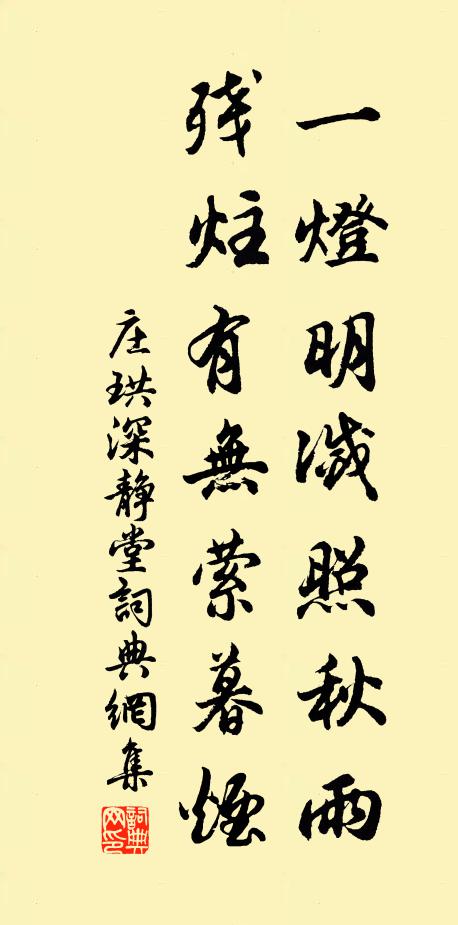 一燈明滅照秋雨
残炷有無縈暮煙
庄珙深靜堂詞典網集
詞典網印